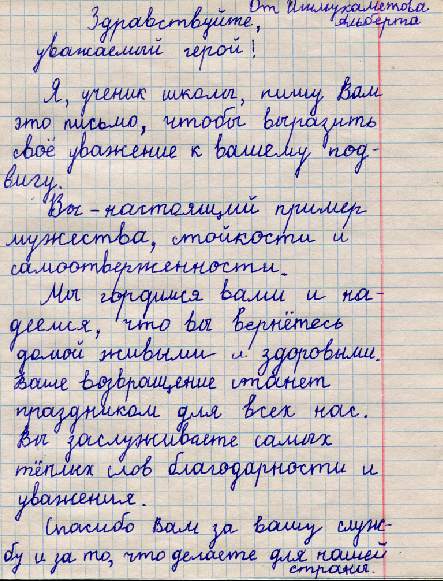 От Ишмухаметова
Альберта
Здравствуйте,
уважаемый герой!
Я, ученик школы, пишу Вам
это письмо, чтобы выразить
своё уважение к вашему под-
вигу.
Вы - настоящий пример
мужества, стойкости и
самоотверженности.
Мы гордимся вами и на-
деемся, что вы вернётесь
домой живыми и здоровыми.
Ваше возвращение станет
праздником для всех нас.
Вы заслуживаете самых
тёплых слов благодарности и
уважения.
Спасибо Вам за вашу служ-
бу и за то, что делаете для нашей
страны.